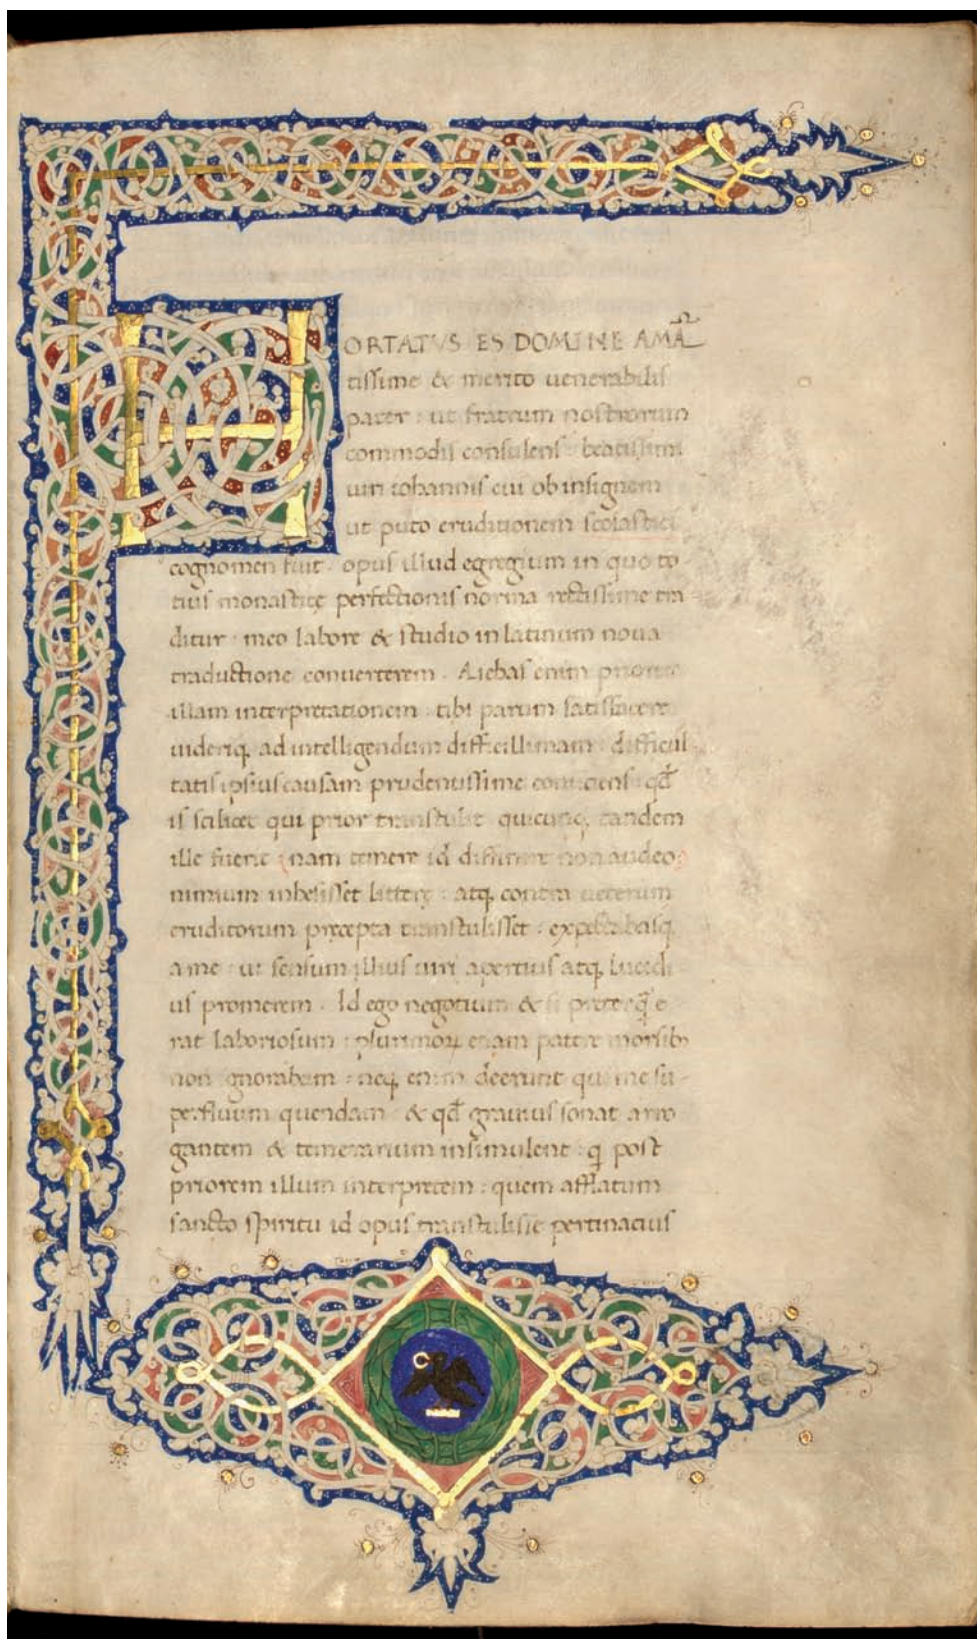 HORTATUS ES DOMINE AMA
tissime & merito uenerabilis
pater : ut fratrum nostrorum
commodis consulens : beatissimi
uiri iohannis cui ob insignem
ut puto eruditionem scolastici
cognomen fuit . opus illud egregium in quo to-
tius monasticę perfectionis norma rectissime tra
ditur : meo labore & studio in latinum noua
traductione conuerterem . Aiebas enim priorem
illam interpretationem : tibi parum satisfacere
uideriq, ad intelligendum difficillimam : difficul
tatis ipsius causam prudentissime coniiciens : qđ
is scilicet qui prior transtulit quicunq, tandem
ille fuerit : nam temere id diffinire non audeo :
nimium inhesisset litterę : atq, contra ueterum
eruditorum pręcepta transtulisset : expectabasq,
a me : ut sensum illius uiri apertius atq, lucidi
us promerem . Id ego negotium & si preterq̃ e
rat laboriosum : plurimoꝝ etiam patere morsib;
non ignorabam : neq, enim deerunt qui me su-
perfluum quendam & qđ grauius sonat arro
gantem & temerarium insimulent : q post
priorem illum interpretem : quem afflatum
sancto spiritu id opus transtulisse pertinacius